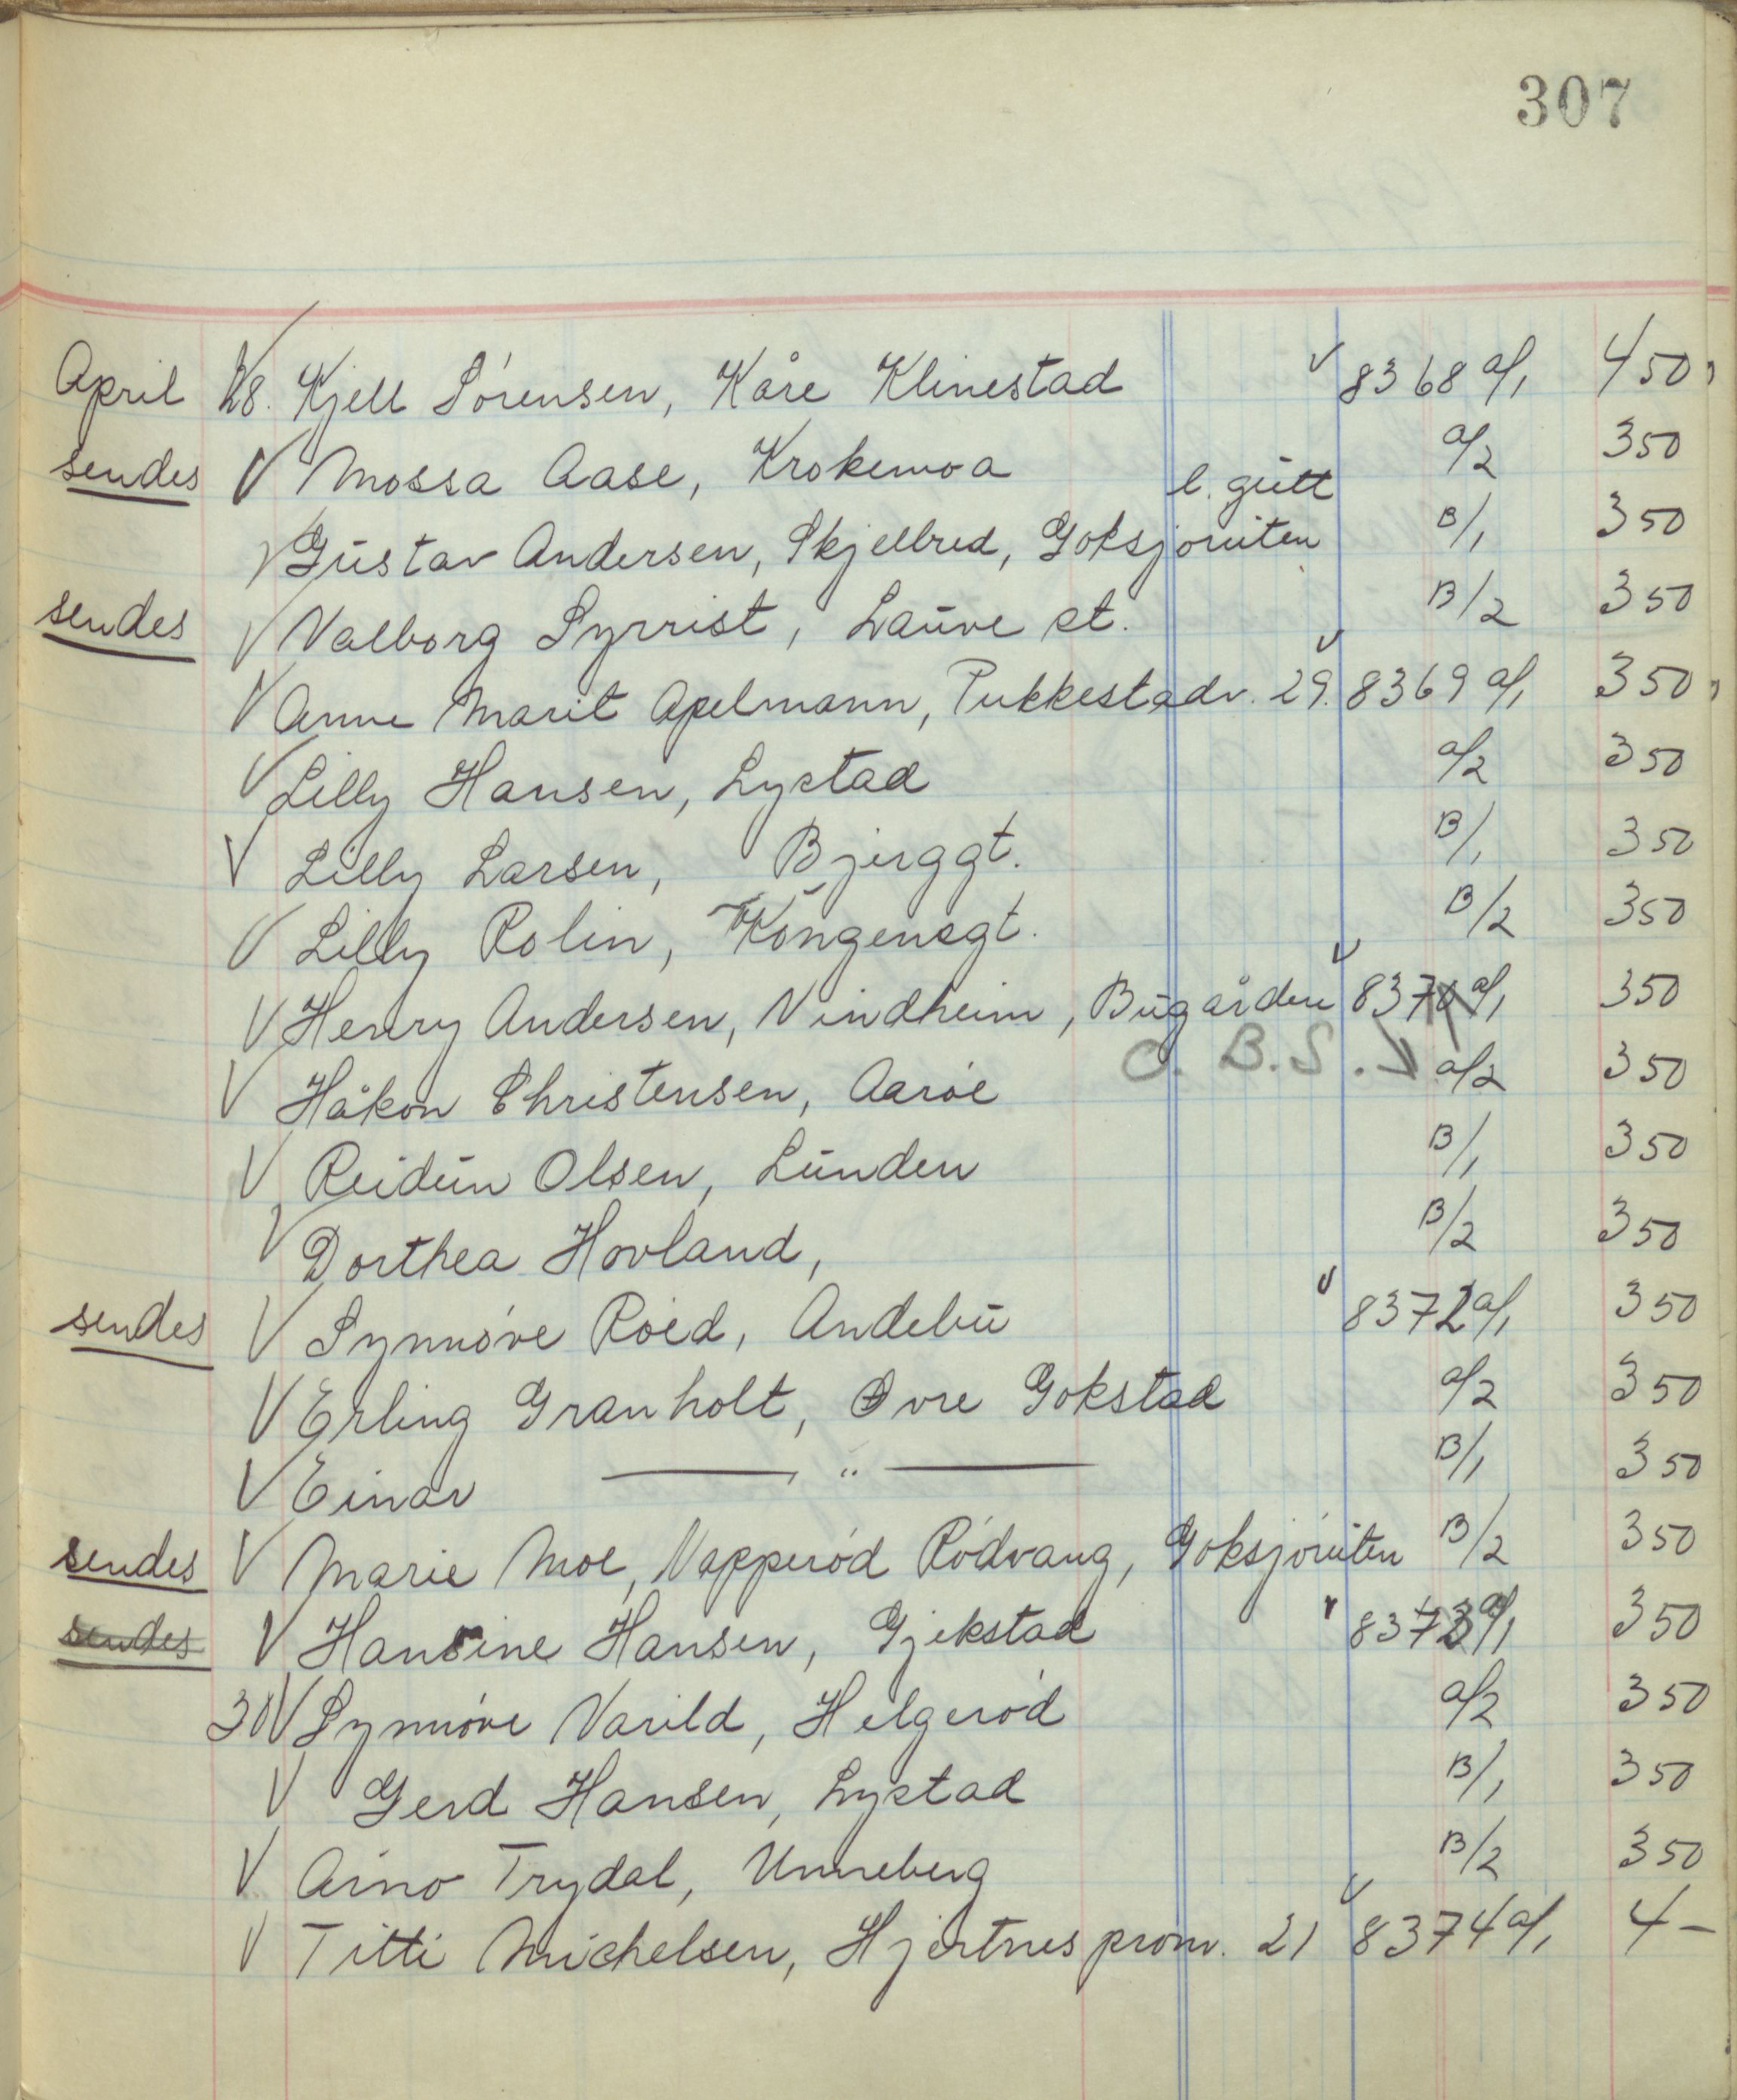 307
April 28. Kjell Sørensen, Kåre Klinestad 8368 a/1 450
sendes V Mossa Aase, Krokemoa a/2 350
l. gutt
V Gustav Andersen, Skjelbred, Goksjøruten B/1 350
sendes V Valborg Syrrist, Lauve st. B/2 350
V Anne Marit Apelmann, Pukkestadv. 29. 8369 a/1 350
V Lilly Hansen, Lystad a/2 350
V Lilly Larsen, Bjerggt. B/1 350
V Lilly Rolin, Kongensgt. B/2 350
V Henry Andersen, Vindheim, Bugården 8370 a/1 350
O. B.S.
V Håkon Christensen, Aarøe a/2 350
V Reidun Olsen, Lunden B/1 350
V Dorthea Hovland, B/2 350
sendes V Synnøve Røed, Andebu 8372 a/1 350
V Erling Granholt, Øvre Gokstad a/2 350
V Einar — " — B/1 350
sendes V Marie Moe, Napperød Rødvang, Goksjøruten B/2 350
sendes V Hansine Hansen, Gjekstad 8373 a/1 350
30 V Synnøve Varild, Helgerød a/2 350
V Gerd Hansen, Lystad B/1 350
V Arno Trydal, Unneberg B/2 350
V Titti Michelsen, Hjertnes prom. 21 8374 a/1 4 –